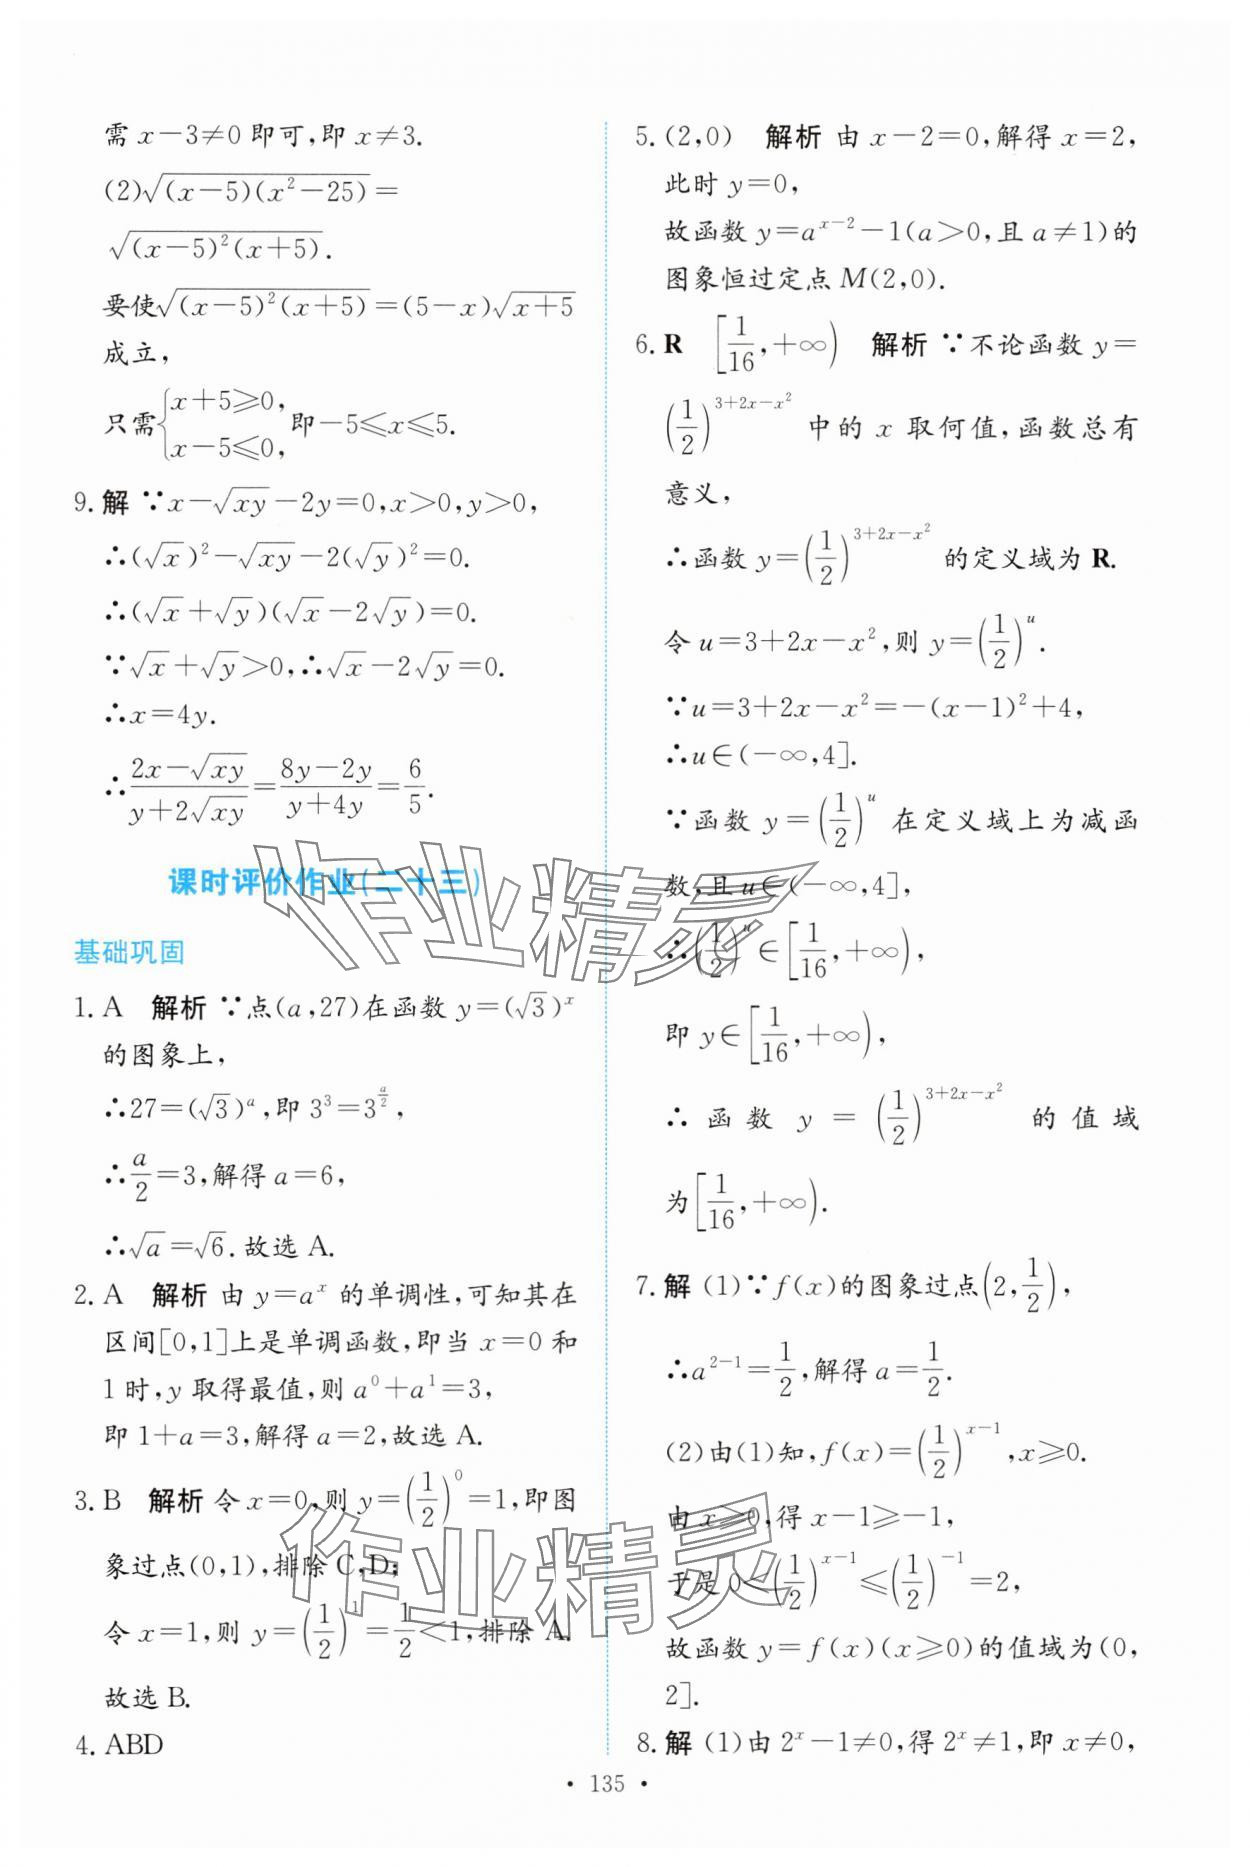 需 x－3≠0 即可,即 x≠3.
(2)√((x－5)(x²－25))＝
√((x－5)²(x＋5)).
要使√((x－5)²(x＋5))＝(5－x)√(x＋5)
成立,
只需{x＋5≥0, x－5≤0, 即－5≤x≤5.
9. 解 ∵x－√(xy)－2y＝0,x＞0,y＞0,
∴(√x)²－√(xy)－2(√y)²＝0.
∴(√x＋√y)(√x－2√y)＝0.
∵√x＋√y＞0,∴√x－2√y＝0.
∴x＝4y.
∴(2x－√(xy))/(y＋2√(xy))＝(8y－2y)/(y＋4y)＝6/5.
课时评价作业(二十三)
基础巩固
1. A 解析 ∵点(a,27)在函数 y＝(√3)^x
的图象上,
∴27＝(√3)^a,即 3³＝3^(a/2),
∴a/2＝3,解得 a＝6,
∴√a＝√6.故选 A.
2. A 解析 由 y＝a^x 的单调性,可知其在
区间[0,1]上是单调函数,即当 x＝0 和
1 时,y 取得最值,则 a⁰＋a¹＝3,
即 1＋a＝3,解得 a＝2,故选 A.
3. B 解析 令 x＝0,则 y＝(1/2)^0＝1,即图
象过点(0,1),排除 C,D;
令 x＝1,则 y＝(1/2)^1＝1/2＜1,排除 A.
故选 B.
4. ABD
5. (2,0) 解析 由 x－2＝0,解得 x＝2,
此时 y＝0,
故函数 y＝a^(x－2)－1(a＞0,且 a≠1)的
图象恒过定点 M(2,0).
6. R [1/16,＋∞) 解析 ∵不论函数 y＝
(1/2)^(3＋2x－x²) 中的 x 取何值,函数总有
意义,
∴函数 y＝(1/2)^(3＋2x－x²) 的定义域为 R.
令 u＝3＋2x－x²,则 y＝(1/2)^u.
∵u＝3＋2x－x²＝－(x－1)²＋4,
∴u∈(－∞,4].
∵函数 y＝(1/2)^u 在定义域上为减函
数,且 u∈(－∞,4],
∴(1/2)^u∈[1/16,＋∞),
即 y∈[1/16,＋∞),
∴函数 y＝(1/2)^(3＋2x－x²) 的值域
为[1/16,＋∞).
7. 解 (1)∵f(x)的图象过点(2,1/2),
∴a^(2－1)＝1/2,解得 a＝1/2.
(2)由(1)知,f(x)＝(1/2)^(x－1),x≥0.
由 x≥0,得 x－1≥－1,
于是 0＜(1/2)^(x－1)≤(1/2)^(－1)＝2,
故函数 y＝f(x)(x≥0)的值域为(0,
2].
8. 解 (1)由 2^x－1≠0,得 2^x≠1,即 x≠0,
• 135 •
作业精灵
作业精灵